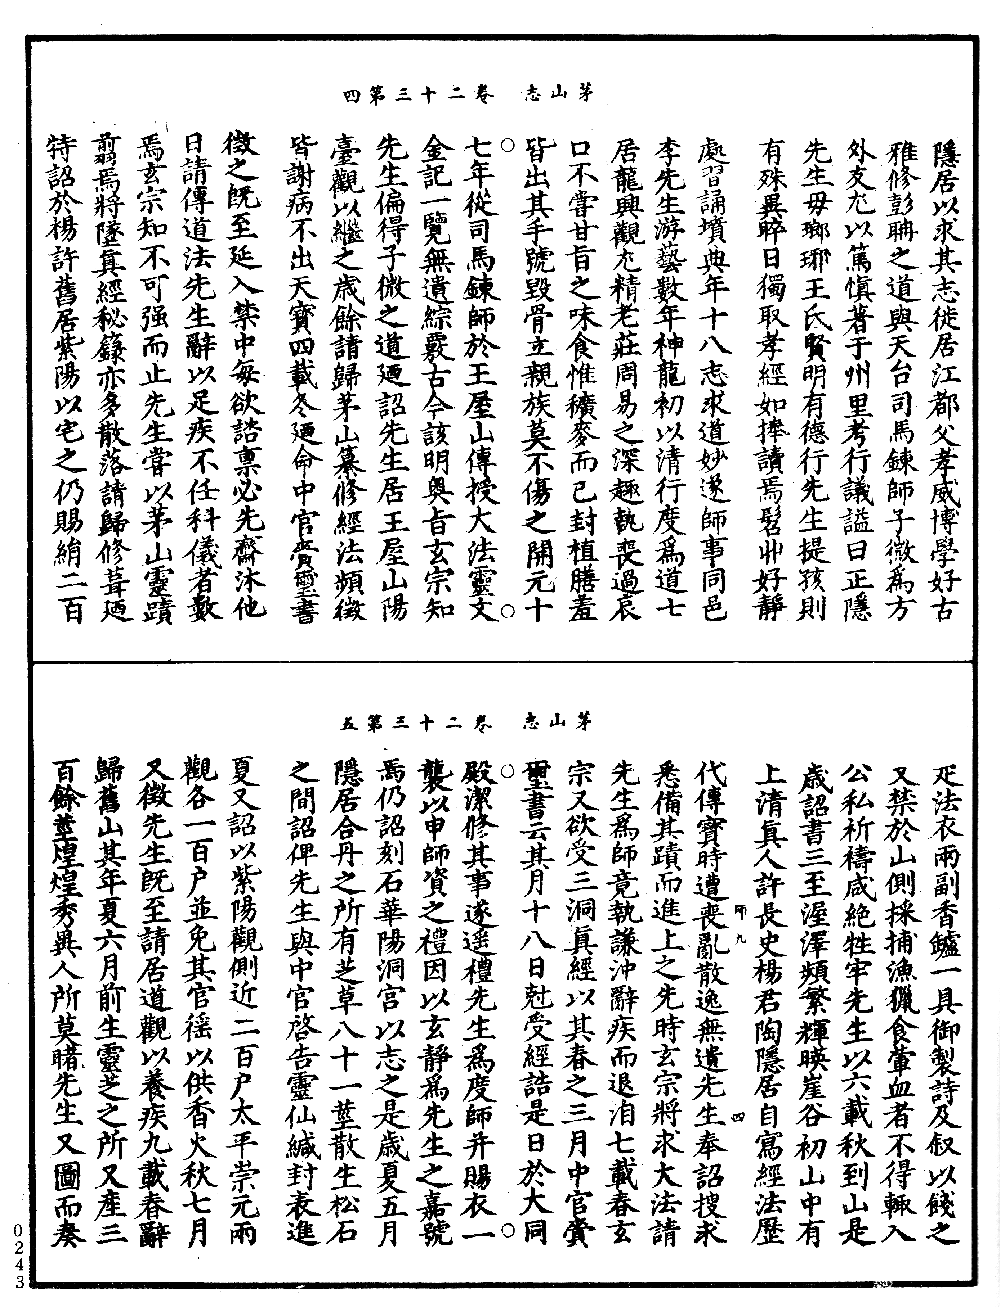 茅山志　卷二十三第四
隱居以求其志徙居江都父孝威博學好古
雅修彭聃之道與天台司馬鍊師子微爲方
外友尤以篤愼著于州里考行議謚曰正隱
先生毋瑯琊王氏賢明有德行先生提孩則
有殊異晬日獨取孝經如捧讀焉髫丱好靜
處習誦墳典年十八志求道妙遂師事同邑
李先生游藝數年神龍初以清行度爲道士
居龍興觀尤精老莊周易之深趣執喪過哀
口不嘗甘旨之味食惟穬麥而已封植膳羞
皆出其手號毀骨立親族莫不傷之開元十
七年從司馬鍊師於王屋山傳授大法靈文
金記一覽無遺綜覈古今該明奧旨玄宗知
先生偏得子微之道廼詔先生居王屋山陽
臺觀以繼之歲餘請歸茅山纂修經法頻徵
皆謝病不出天寶四載冬廼命中官賫璽書
徵之旣至延入禁中每欲諮稟必先齋沐他
日請傳道法先生辭以足疾不任科儀者數
焉玄宗知不可强而止先生嘗以茅山靈蹟
翦焉將墜眞經秘籙亦多散落請歸修葺廼
特詔於楊許舊居紫陽以宅之仍賜絹二百
茅山志　卷二十三第五
疋法衣兩副香鑪一具御製詩及叙以餞之
又禁於山側採捕漁獵食葷血者不得輒入
公私祈禱咸絶牲牢先生以六載秋到山是
歲詔書三至渥澤頻繁輝暎崖谷初山中有
上清眞人許長史楊君陶隱居自寫經法歷
代傳寶時遭喪亂散逸無遺先生奉詔搜求
悉備其蹟而進上之先時玄宗將求大法請
先生爲師竟執謙沖辭疾而退洎七載春玄
宗又欲受三洞眞經以其春之三月中官賫
璽書云其月十八日尅受經誥是日於大同
殿潔修其事遂遥禮先生爲度師并賜衣一
襲以申師資之禮因以玄靜爲先生之嘉號
焉仍詔刻石華陽洞宫以志之是歲夏五月
隱居合丹之所有芝草八十一莖散生松石
之間詔俾先生與中官啓告靈仙緘封表進
夏又詔以紫陽觀側近二百户太平崇元兩
觀各一百户並免其官徭以供香火秋七月
又徵先生旣至請居道觀以養疾九載春辭
歸舊山其年夏六月前生靈芝之所又產三
百餘莖煌煌秀異人所莫睹先生又圖而奏
九
四
0243